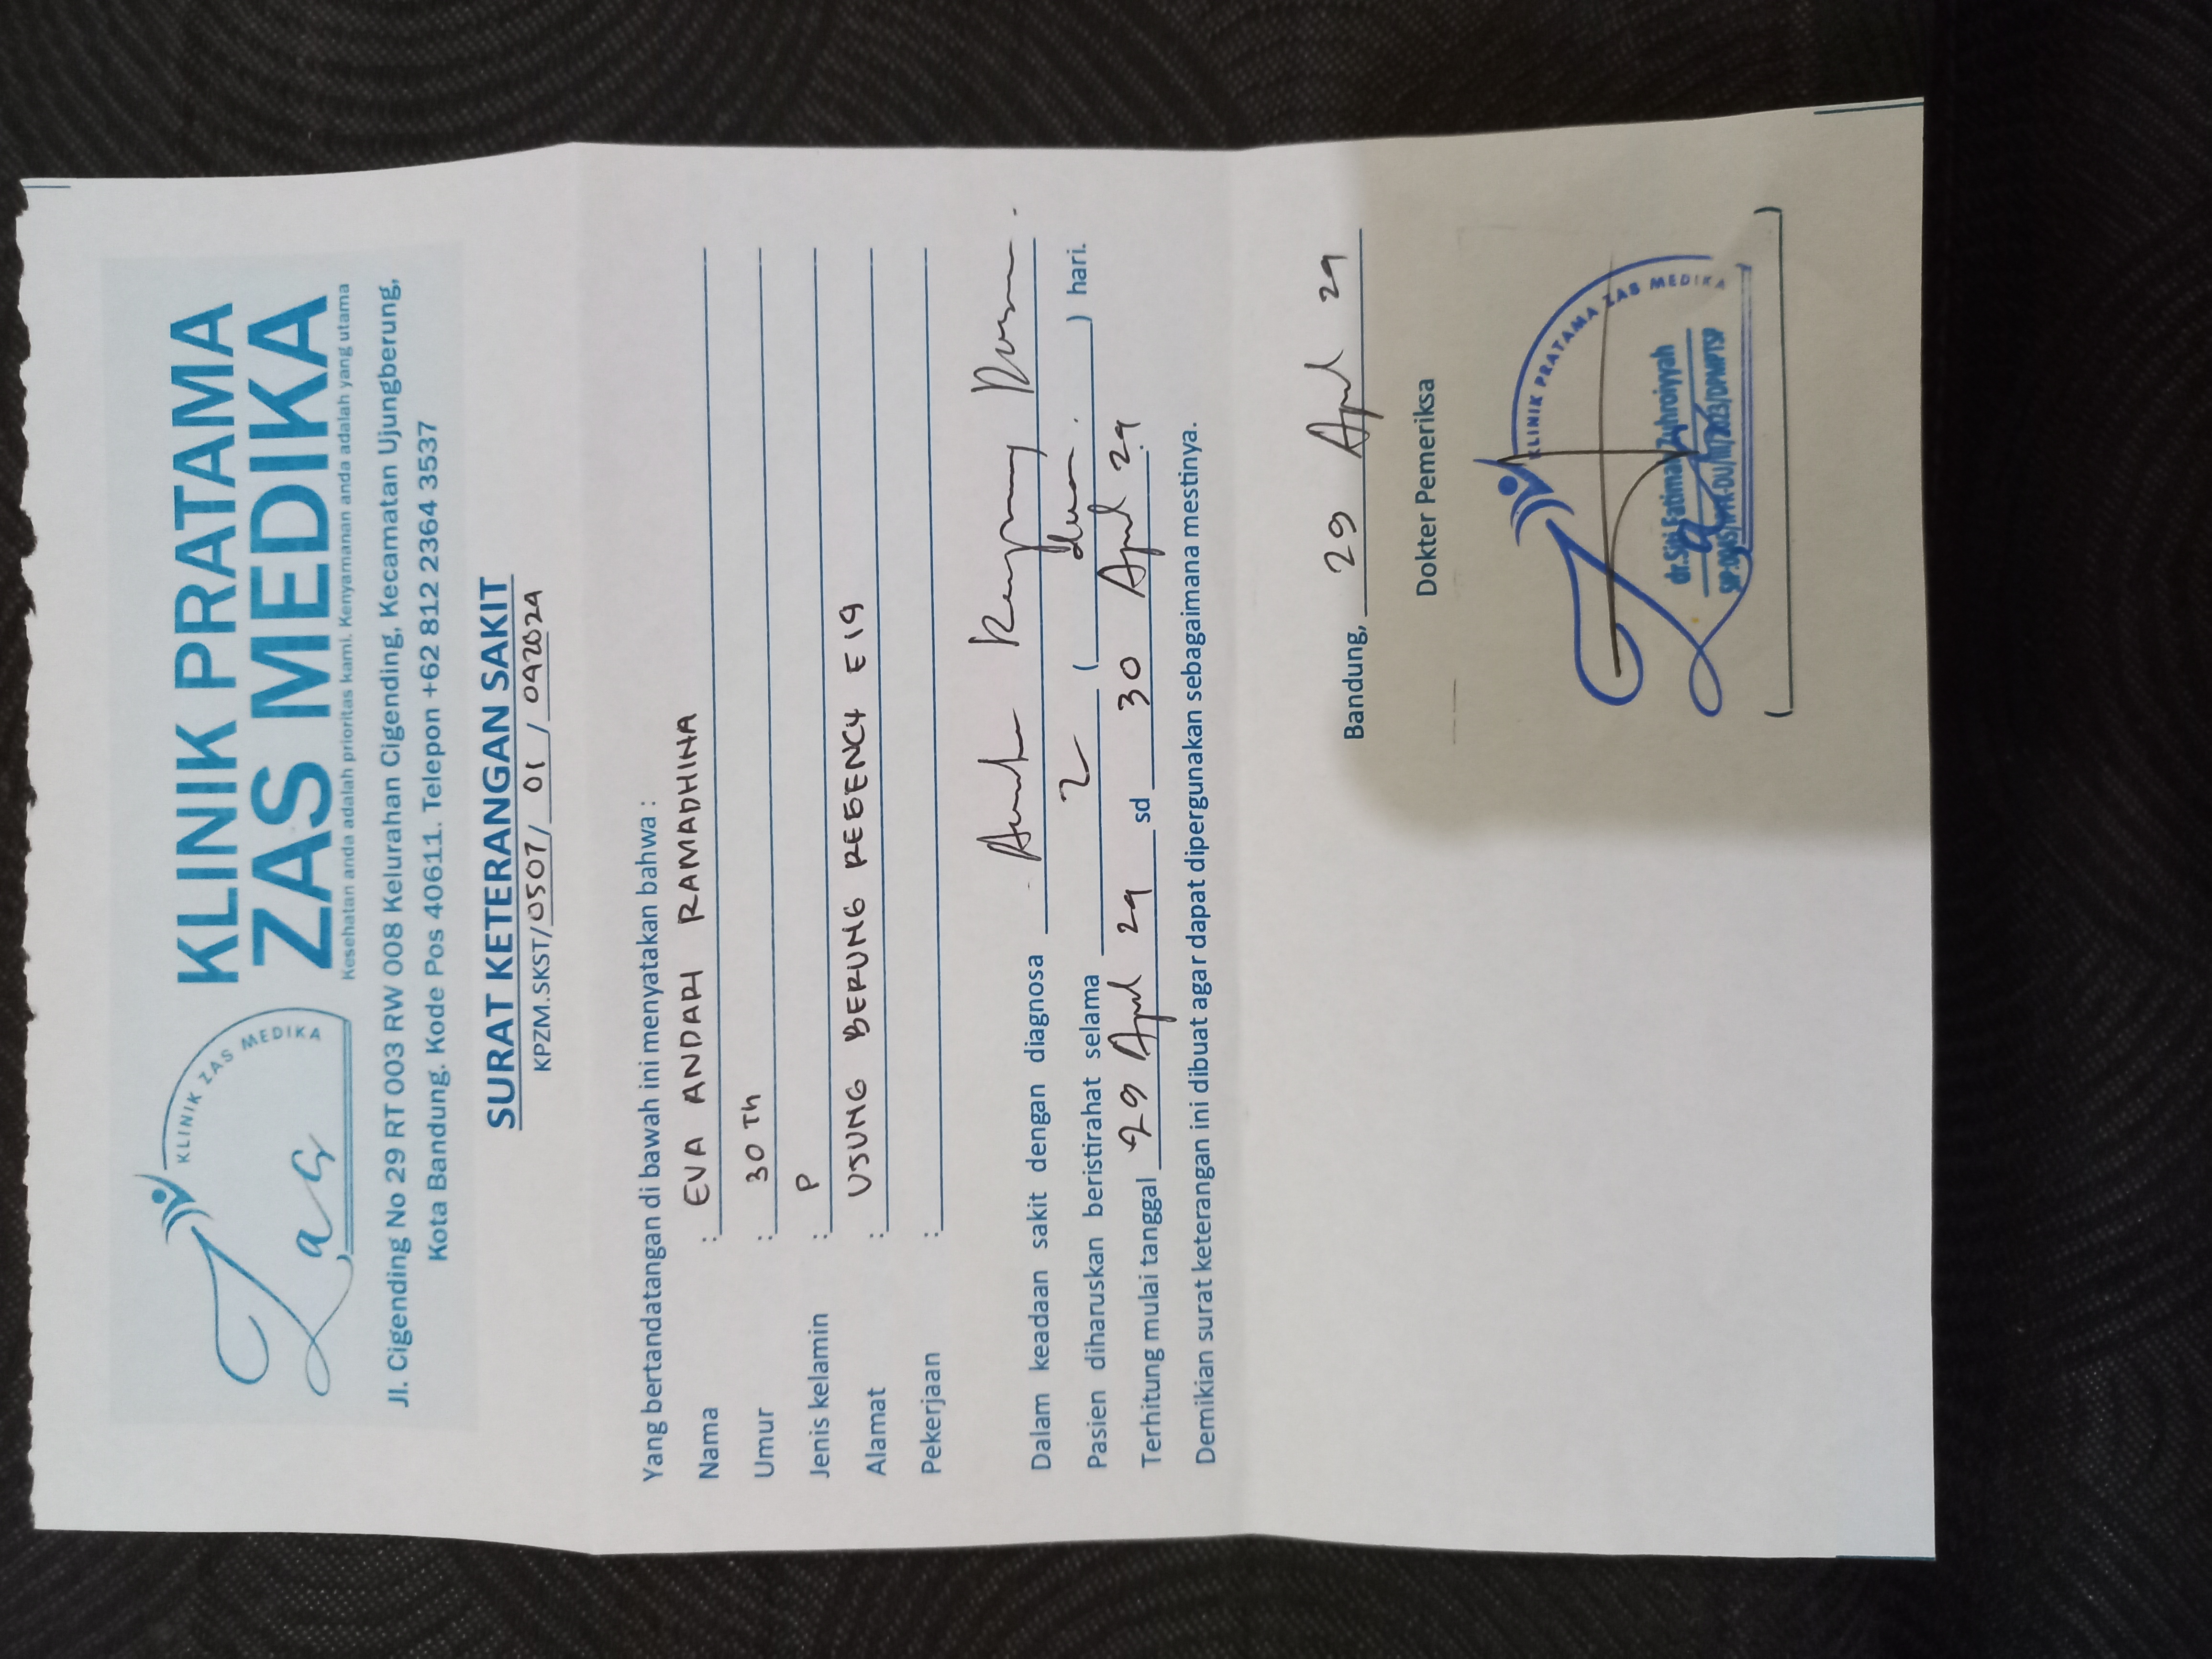 Zas
KLINIK ZAS MEDIKA
KLINIK PRATAMA
ZAS MEDIKA
Kesehatan anda adalah prioritas kami. Kenyamanan anda adalah yang utama
Jl. Cigending No 29 RT 003 RW 008 Kelurahan Cigending, Kecamatan Ujungberung,
Kota Bandung. Kode Pos 40611. Telepon +62 812 2364 3537
SURAT KETERANGAN SAKIT
KPZM.SKST/0507/ 01 / 042024
Yang bertandatangan di bawah ini menyatakan bahwa :
Nama : EVA ANDARI RAMADHINA
Umur : 30 Th
Jenis kelamin : P
Alamat : UJUNG BERUNG REGENCY E19
Pekerjaan :
Dalam keadaan sakit dengan diagnosa
Pasien diharuskan beristirahat selama 2 ( dua ) hari.
Terhitung mulai tanggal 29 April 24 sd 30 April 24
Demikian surat keterangan ini dibuat agar dapat dipergunakan sebagaimana mestinya.
Bandung, 29 April 24
Dokter Pemeriksa
KLINIK PRATAMA ZAS MEDIKA
dr.Siti Fatimah Zuhroiyyah